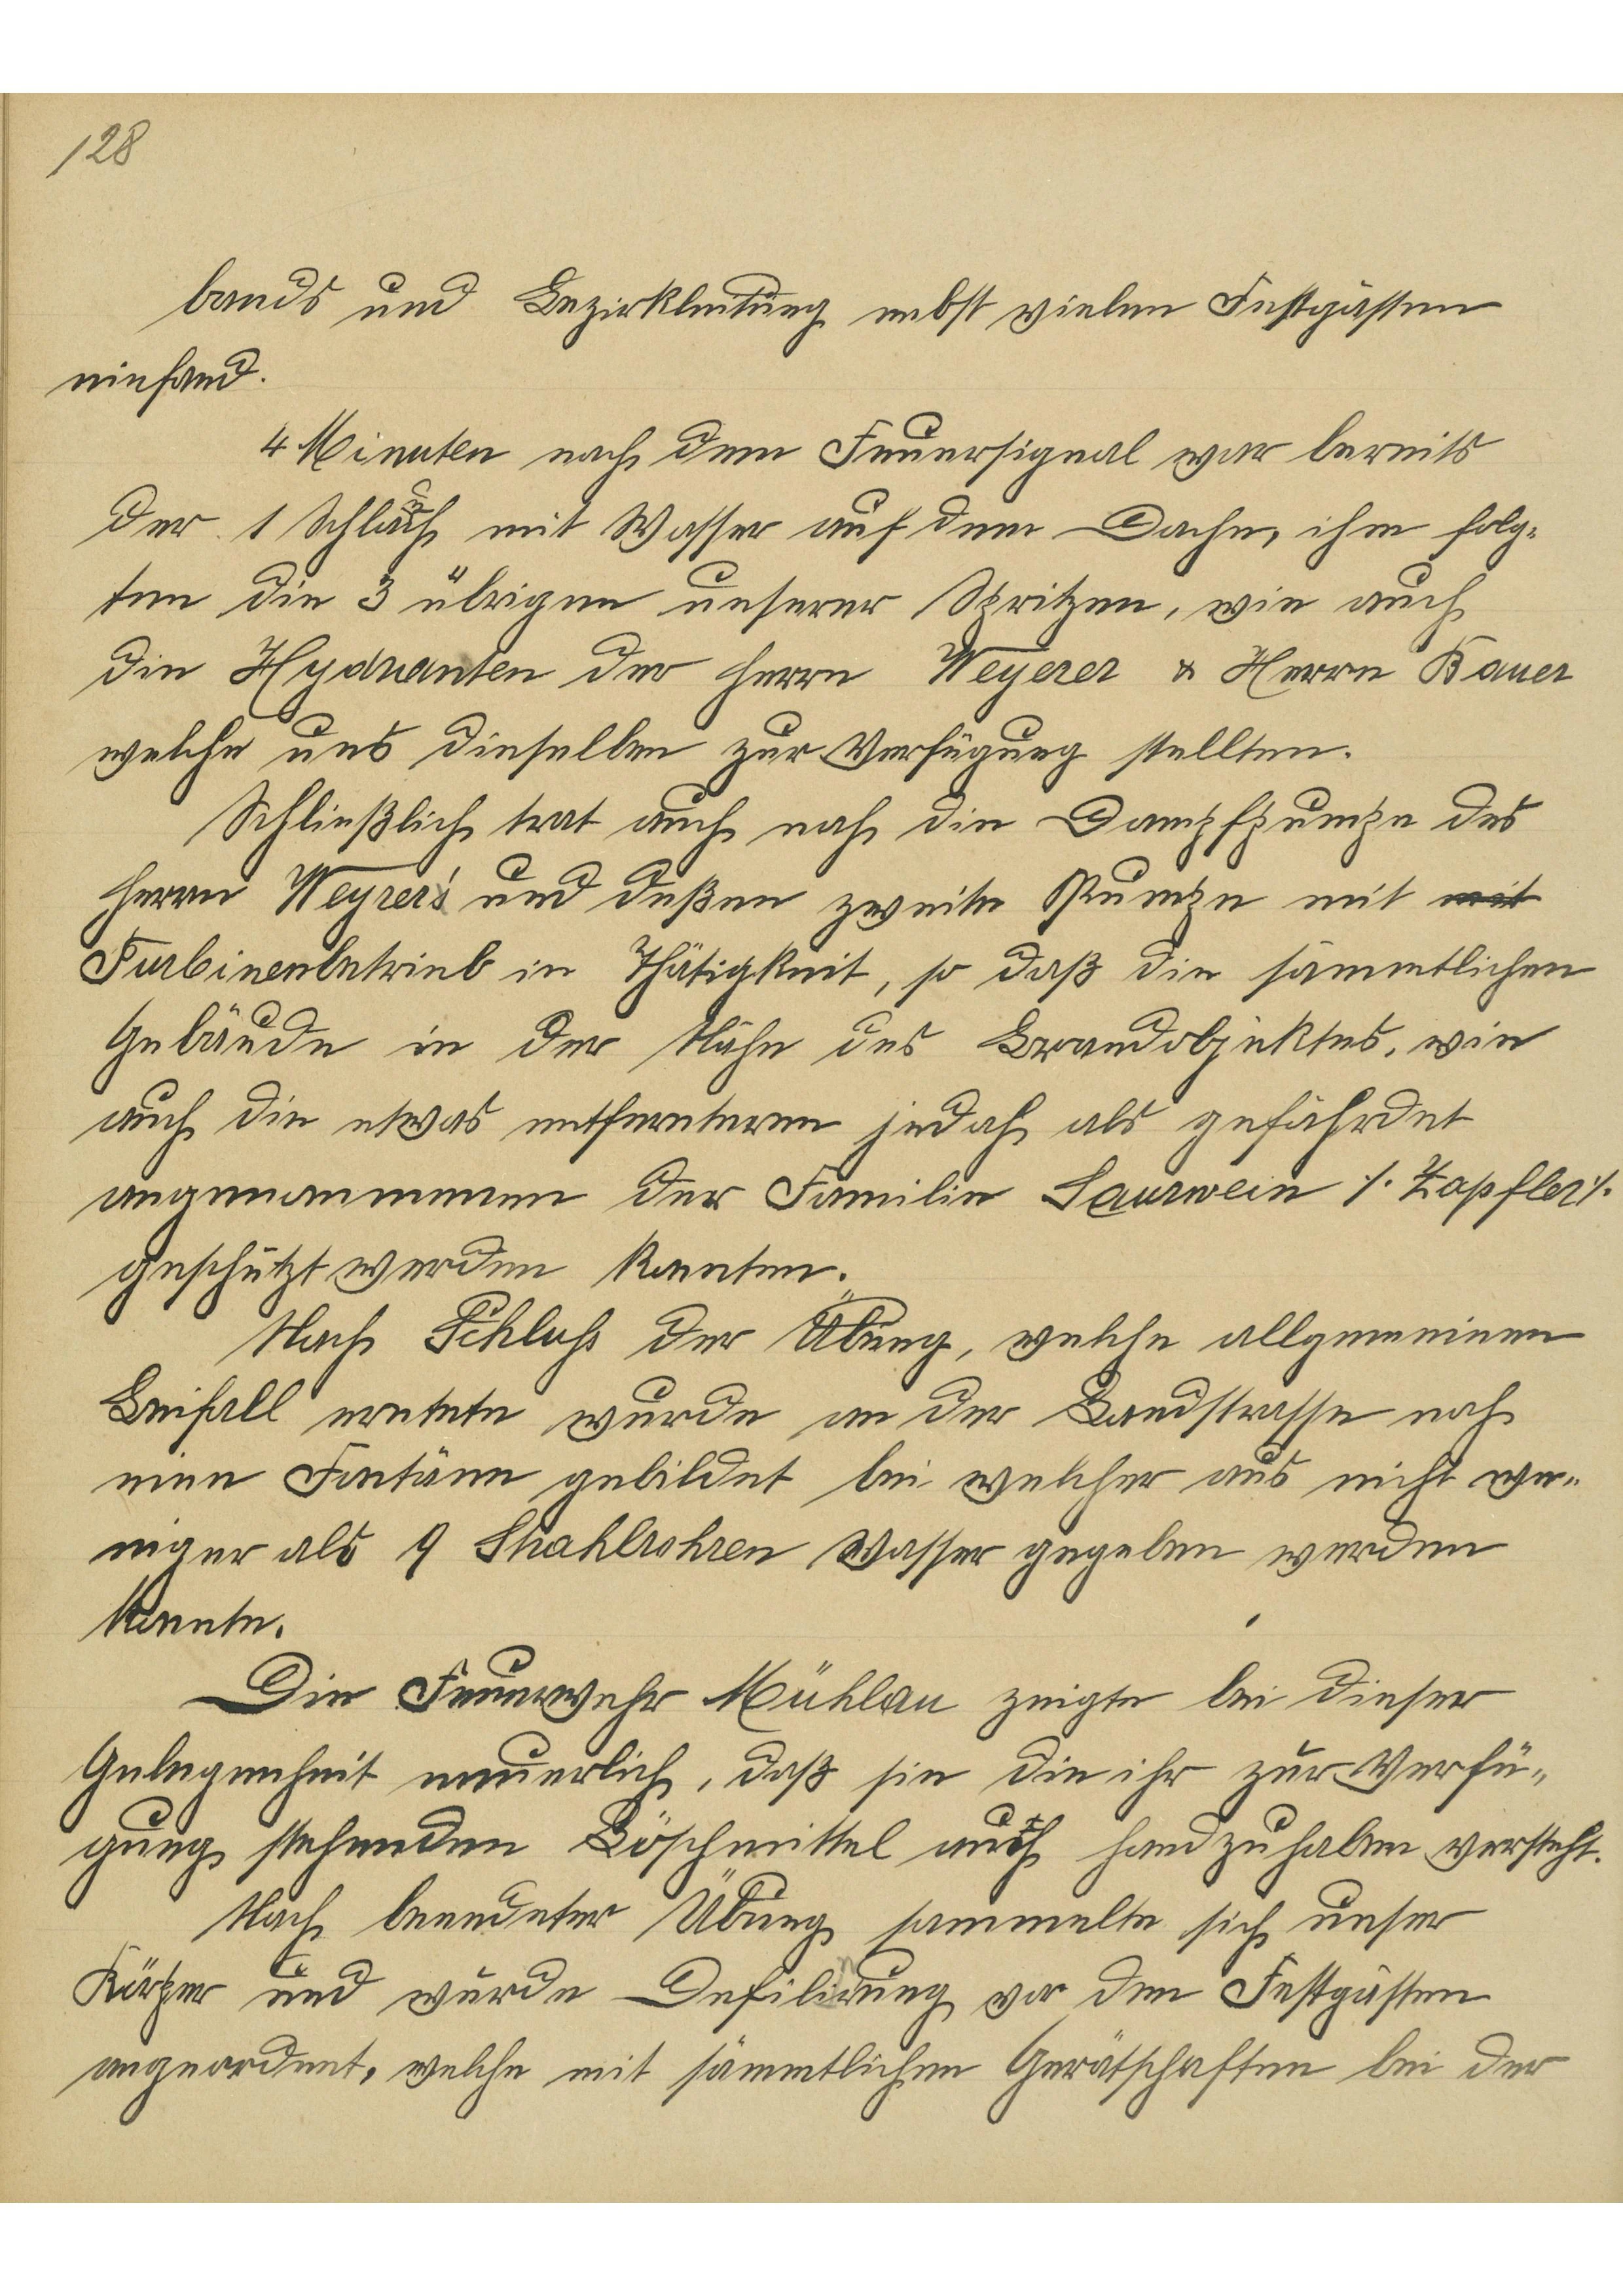 128
bands und Bezirkleitung nebst vielen Festgästen
einfand.
4 Minuten nach dem Feuersignal war bereits
der 1 Schlauch mit Wasser auf dem Dache, ihm folg-
ten die 3 übrigen unserer Spritzen, wie auch
die Hydranten der Herrn Weyerer & Herrn Bauer
welche uns dieselben zur Verfügung stellten.
Schließlich trat auch noch die Dampfpumpe des
Herrn Weyrer's und deßen zweite Pumpe mit mit
Turbinenbetrieb in Thätigkeit, so daß die sämmtlichen
Gebäude in der Nähe des Brandobjektes, wie
auch die etwas entfernteren jedoch als gefährdet
angenommenen der Familie Saurwein /. Zapfler /.
geschützt werden konnten.
Nach Schluß der Übung, welche allgemeinen
Beifall erntete wurde an der Landstrasse noch
eine Fontäne gebildet bei welcher aus nicht we-
niger als 9 Strahlrohren Wasser gegeben werden
konnte.
Die Feuerwehr Mühlau zeigte bei dieser
Gelegenheit neuerlich, daß sie die ihr zur Verfü-
gung stehenden Löschmittel auch handzuhaben versteht.
Nach beendeter Übung sammelte sich unser
Körper und wurde Defilirung vor den Festgästen
angeordnet, welche mit sämmtlichen Gerätschaften bei der